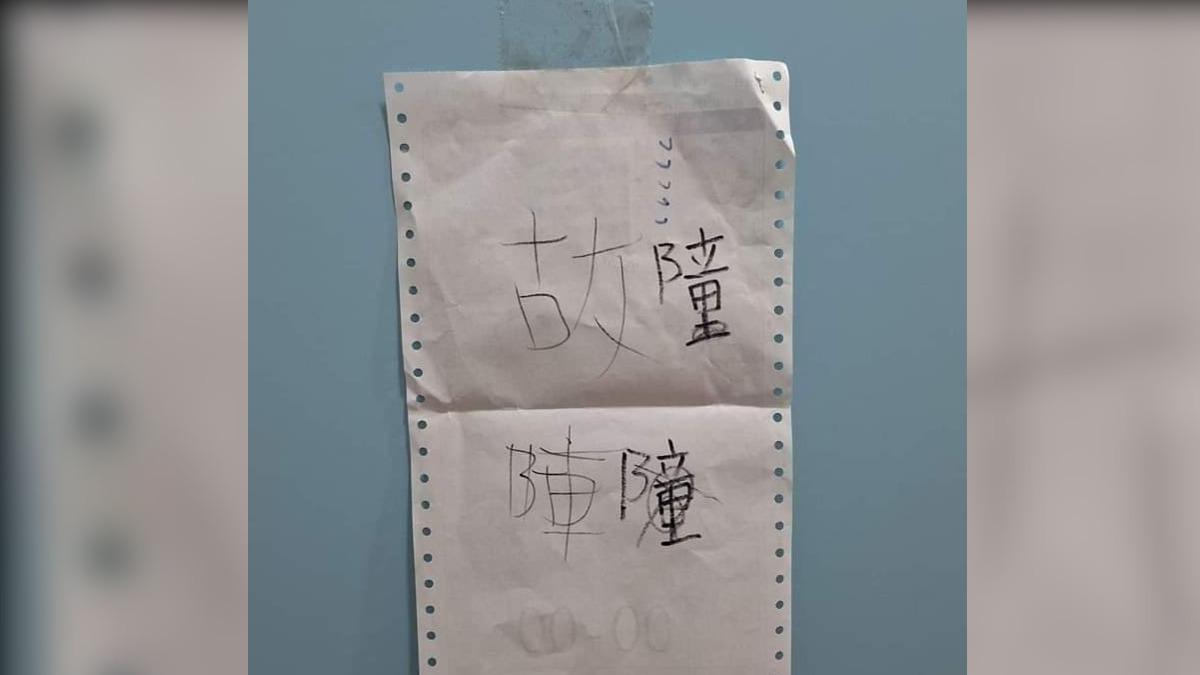 故障
陣障